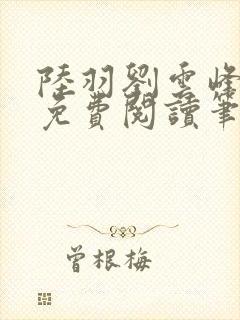 陸羽劉雲峰
免費閱讀筆
曾根梅